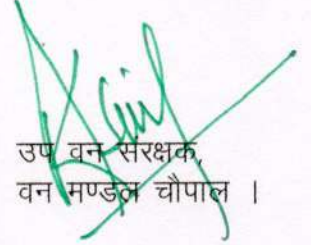 उप वन संरक्षक,
वन मण्डल चौपाल ।